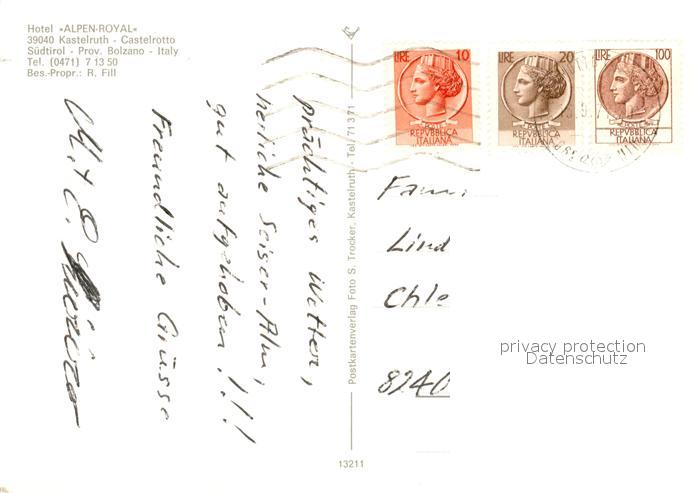 Hotel »ALPEN-ROYAL«
39040 Kastelruth - Castelrotto
Südtirol - Prov. Bolzano - Italy
Tel. (0471) 7 13 50
Bes.-Propr.: R. Fill
prächtiges Wetter,
herliche Seiser-Alm,
gut aufgehoben !!!
Freundliche Grüsse
Postkartenverlag Foto S. Trocker, Kastelruth - Tel. 71371
13211
LIRE 10
POSTE
REPVBBLICA
ITALIANA
LIRE 20
REPVBBLICA
ITALIANA
LIRE 100
REPVBBLICA
ITALIANA
Fam
Lind
Chle
8240
privacy protection
Datenschutz